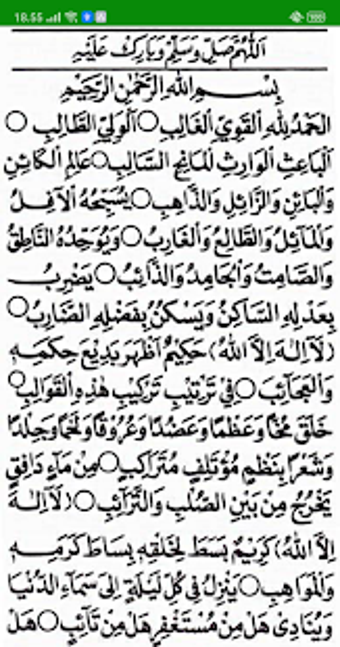 18.55
اَللّٰهُمَّ صَلِّ وَسَلِّمْ وَبَارِكْ عَلَيْهِ
بِسْــــمِ اللهِ الرَّحْمٰنِ الرَّحِيْمِ
اَلْحَمْدُ لِلّٰهِ الْقَوِيِّ الْغَالِبِ ○ اَلْوَلِيِّ الطَّالِبِ ○
اَلْبَاعِثِ الْوَارِثِ الْمَانِحِ السَّالِبِ ○ عَالِمِ الْكَائِنِ
وَالْبَائِنِ وَالزَّائِلِ وَالذَّاهِبِ ○ يُسَبِّحُهُ الْآفِلُ
وَالْمَائِلُ وَالطَّالِعُ وَالْغَارِبُ ○ وَيُوَحِّدُهُ النَّاطِقُ
وَالصَّامِتُ وَالْجَامِدُ وَالذَّائِبُ ○ يَضْرِبُ
بِعَدْلِهِ السَّاكِنُ وَيَسْكُنُ بِفَضْلِهِ الضَّارِبُ ○
(لَآ اِلٰهَ اِلَّا اللهُ) حَكِيْمٌ اَظْهَرَ بَدِيْعَ حِكَمِهِ
وَالْعَجَآئِبَ ○ فِيْ تَرْتِيْبِ تَرْكِيْبِ هٰذِهِ الْقَوَالِبِ ○
خَلَقَ مُخًّا وَعَظْمًا وَعَضُدًا وَعُرُوْقًا وَلَحْمًا وَجِلْدًا
وَشَعْرًا بِنَظْمٍ مُؤْتَلِفٍ مُتَرَاكِبٍ ○ مِنْ مَآءٍ دَافِقٍ
يَخْرُجُ مِنْ بَيْنِ الصُّلْبِ وَالتَّرَآئِبِ ○ (لَآ اِلٰهَ
اِلَّا اللهُ) كَرِيْمٌ بَسَطَ لِخَلْقِهِ بِسَاطَ كَرَمِهِ
وَالْمَوَاهِبِ ○ يَنْزِلُ فِيْ كُلِّ لَيْلَةٍ اِلٰى سَمَآءِ الدُّنْيَا
وَيُنَادِيْ هَلْ مِنْ مُسْتَغْفِرٍ هَلْ مِنْ تَآئِبٍ ○ هَلْ